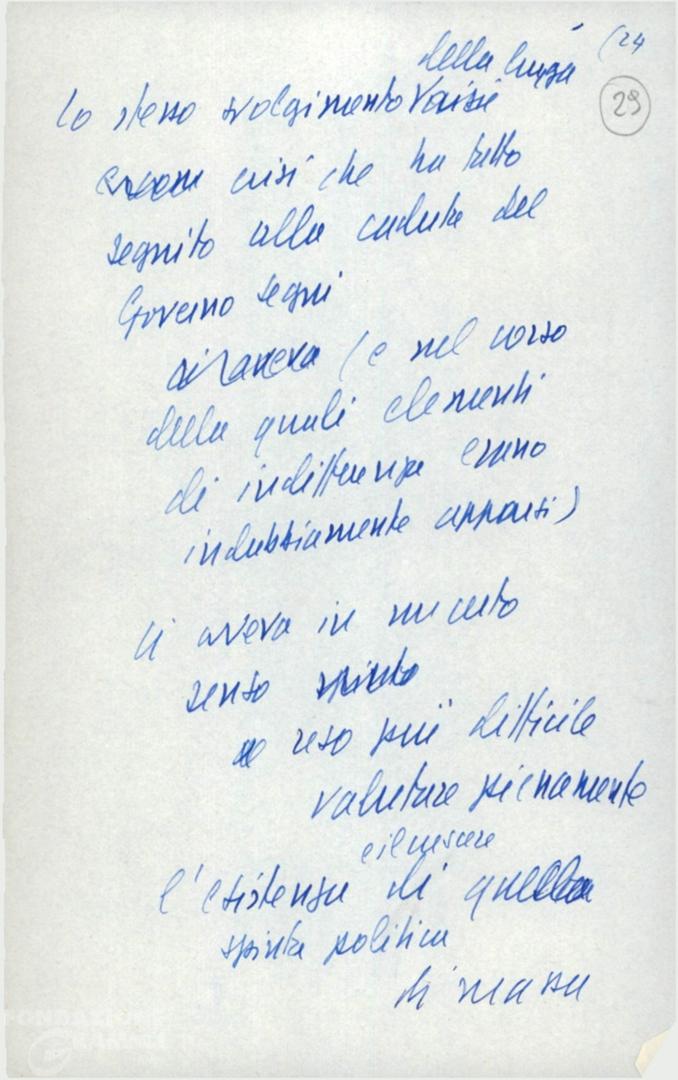 (24
29
della lunga
Lo stesso svolgimento
crisi che ha fatto
seguito alla caduta del
Governo Segni
(e nel corso
della quali elementi
di indifferenza erano
indubbiamente apparsi)
ci aveva in un certo
senso spinto
reso più difficile
valutare pienamente
e il crescere
l'esistenza di quella
spinta politica
di massa
FONDAZIONE
GRAMSCI